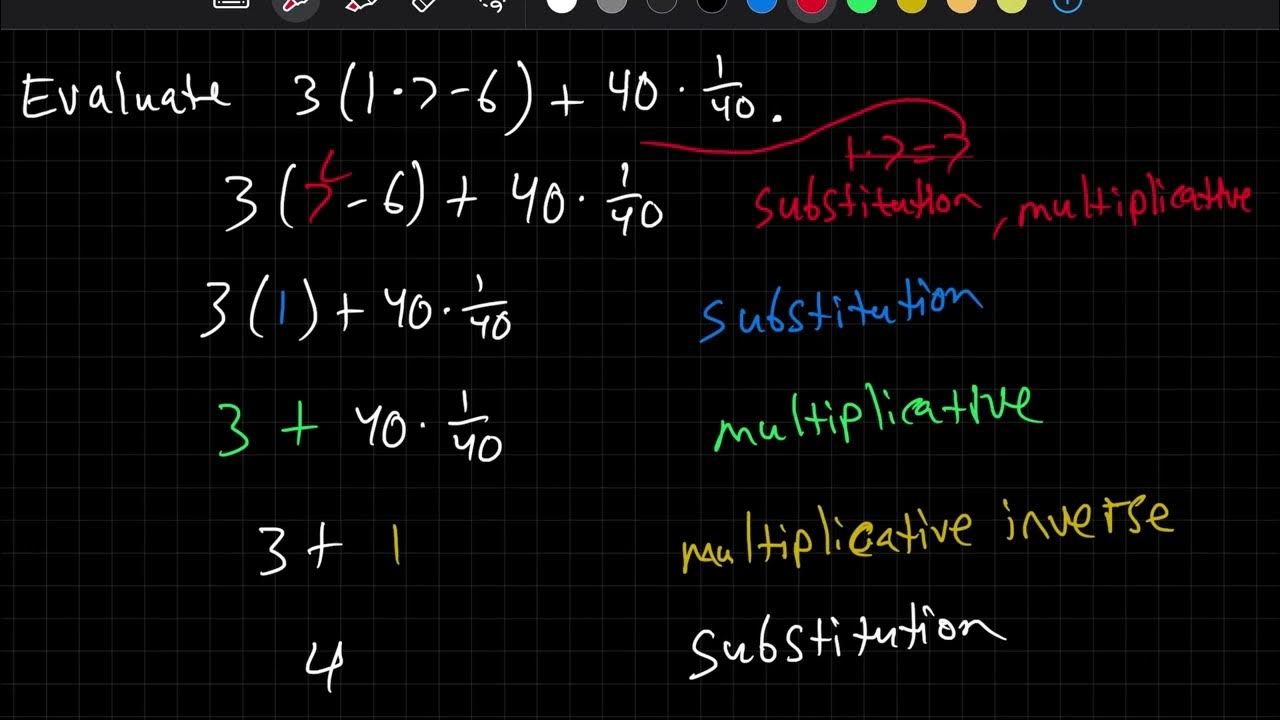 Evaluate 3(1·7-6) + 40·1/40.
1·7=7
3(7-6) + 40·1/40 substitution, multiplicative
3(1) + 40·1/40 substitution
3 + 40·1/40 multiplicative
3 + 1 multiplicative inverse
4 substitution